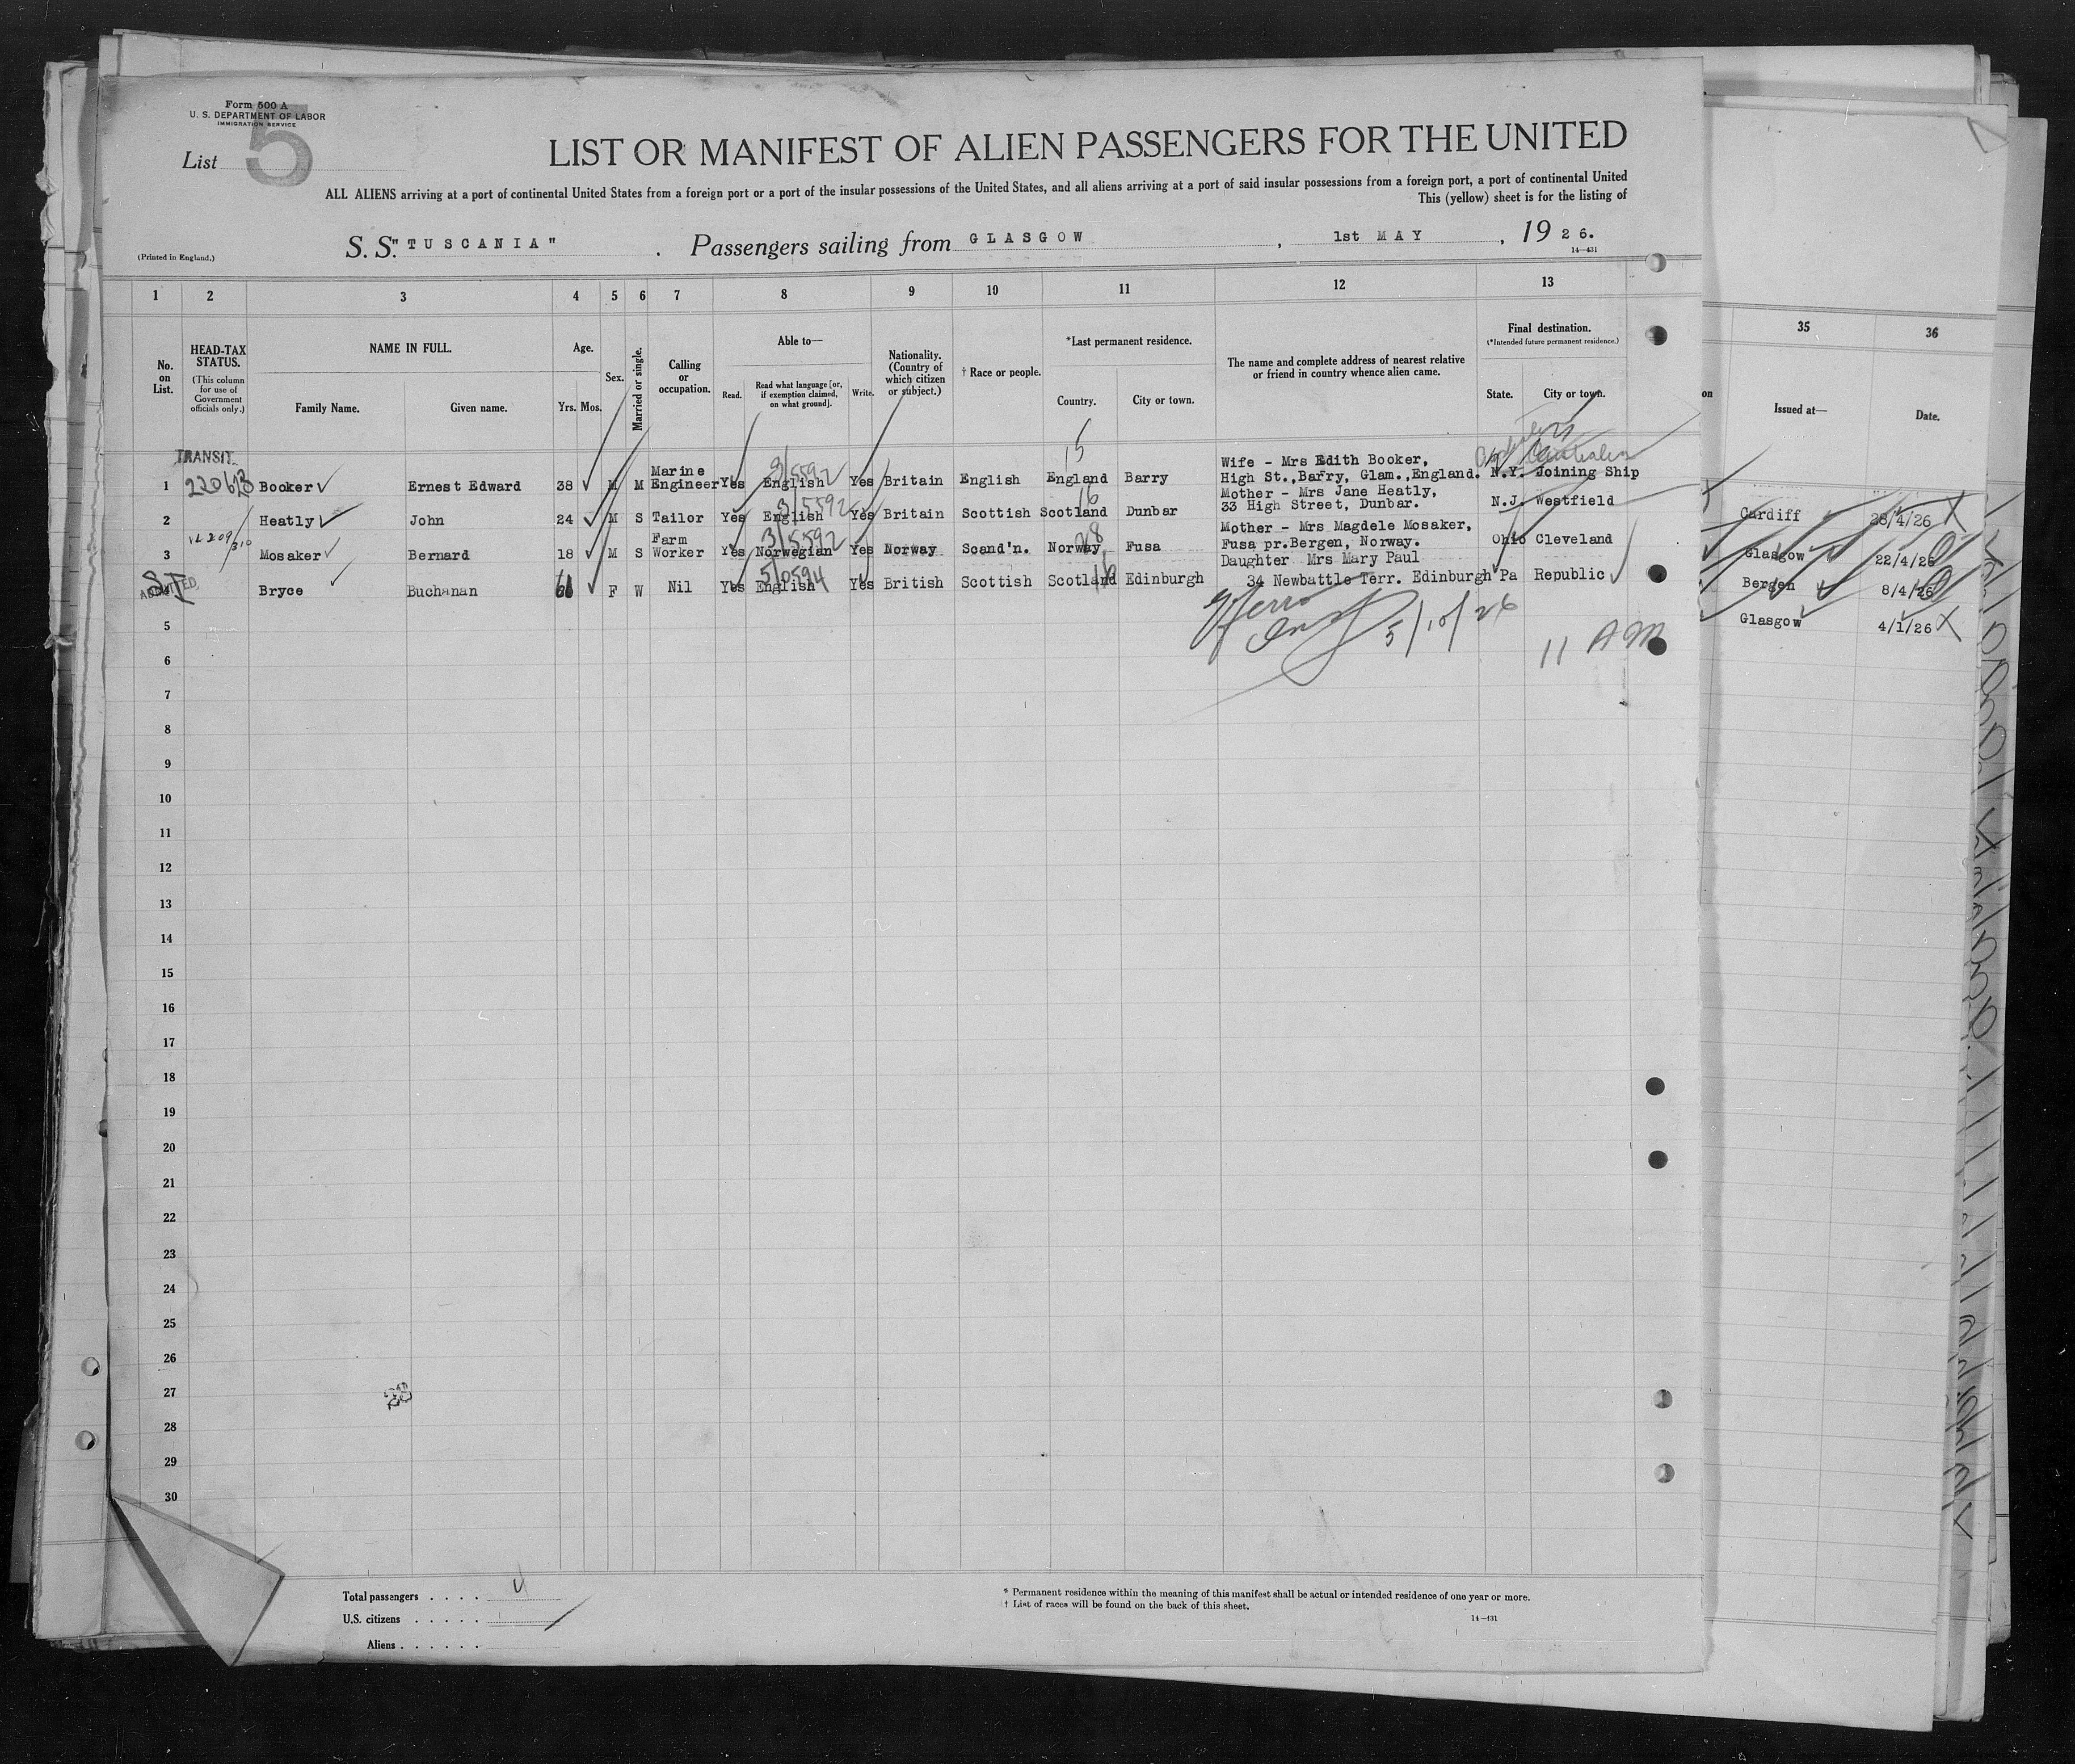 Form 500 A
U. S. DEPARTMENT OF LABOR
IMMIGRATION SERVICE
List 5
LIST OR MANIFEST OF ALIEN PASSENGERS FOR THE UNITED
ALL ALIENS arriving at a port of continental United States from a foreign port or a port of the insular possessions of the United States, and all aliens arriving at a port of said insular possessions from a foreign port, a port of continental United
This (yellow) sheet is for the listing of
(Printed in England.)
S. S. "TUSCANIA" . Passengers sailing from GLASGOW , 1st MAY , 1926.
14—431
1 2 3 4 5 6 7 8 9 10 11 12 13
35 36
No. on List.
HEAD-TAX STATUS.
(This column for use of Government officials only.)
NAME IN FULL.
Family Name. Given name.
Age.
Yrs. Mos.
Sex.
Married or single.
Calling or occupation.
Able to—
Read. Read what language [or, if exemption claimed, on what ground]. Write.
Nationality. (Country of which citizen or subject.)
† Race or people.
*Last permanent residence.
Country. City or town.
The name and complete address of nearest relative or friend in country whence alien came.
Final destination.
(*Intended future permanent residence.)
State. City or town.
on
Issued at— Date.
TRANSIT.
15
Australia
3/5592
Marine Wife - Mrs Edith Booker,
1 Booker Ernest Edward 38 M M Engineer Yes English Yes Britain English England Barry High St.,Barry, Glam.,England. N.Y. Joining Ship
Cardiff 28/4/26
3/5592
16
Mother - Mrs Jane Heatly,
2 Heatly John 24 M S Tailor Yes English Yes Britain Scottish Scotland Dunbar 33 High Street, Dunbar. N.J. Westfield
Glasgow 22/4/26
3/5592
28
Farm Mother - Mrs Magdele Mosaker,
3 Mosaker Bernard 18 M S Worker Yes Norwegian Yes Norway Scand'n. Norway Fusa Fusa pr.Bergen, Norway. Ohio Cleveland
Bergen 8/4/26
5/0594
16
ADMITTED
SI
Daughter Mrs Mary Paul
Bryce Buchanan 61 F W Nil Yes English Yes British Scottish Scotland Edinburgh 34 Newbattle Terr. Edinburgh Pa Republic
Glasgow 4/1/26
5/10/26
11 AM
5
6
7
8
9
10
11
12
13
14
15
16
17
18
19
20
21
22
23
24
25
26
27
28
29
30
Total passengers . . . .
U.S. citizens . . . . .
Aliens . . . . . .
* Permanent residence within the meaning of this manifest shall be actual or intended residence of one year or more.
† List of races will be found on the back of this sheet.
14—431